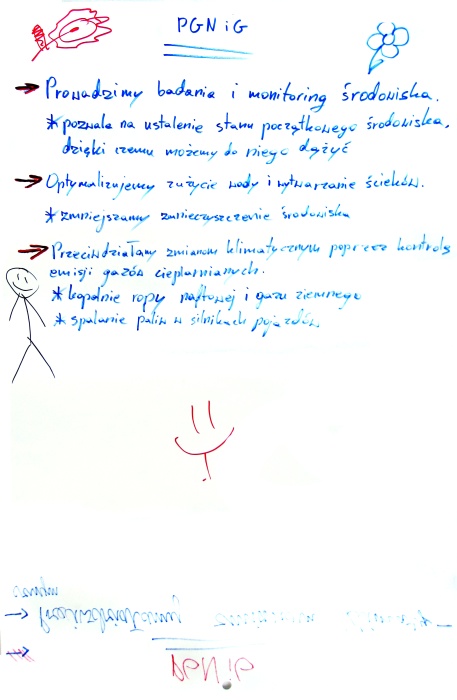 PGNiG
→ Prowadzimy badania i monitoring środowiska.
* pozwala na ustalenie stanu początkowego środowiska,
dzięki czemu możemy do niego dążyć
→ Optymalizujemy zużycie wody i wytwarzanie ścieków.
* zmniejszamy zanieczyszczenie środowiska
→ Przeciwdziałamy zmianom klimatycznym poprzez kontrolę
emisji gazów cieplarnianych.
* kopalnie ropy naftowej i gazu ziemnego
* spalanie paliw w silnikach pojazdów
→ Przeciwdziałamy
PGNiG